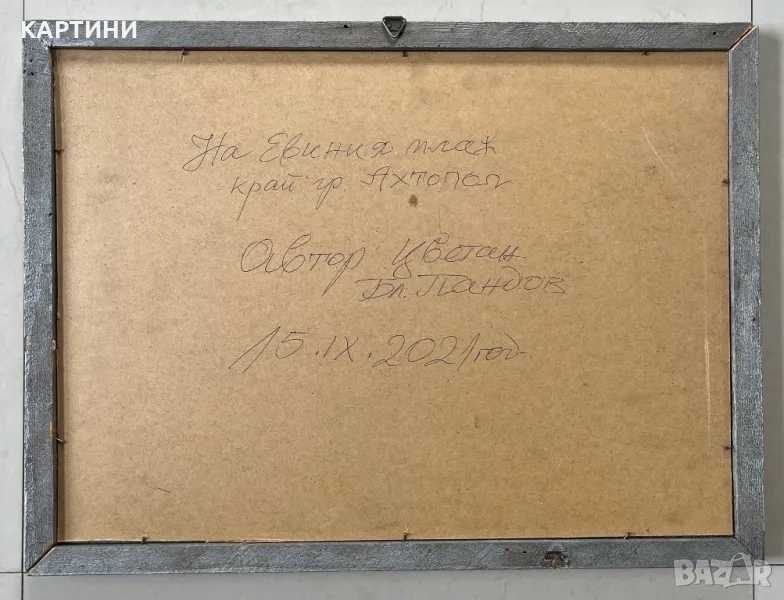 КАРТИНИ
На Евиния плаж
край гр. Ахтопол
Автор Цветан
Бл. Пандов
15.IX.2021 год.
BAZAR